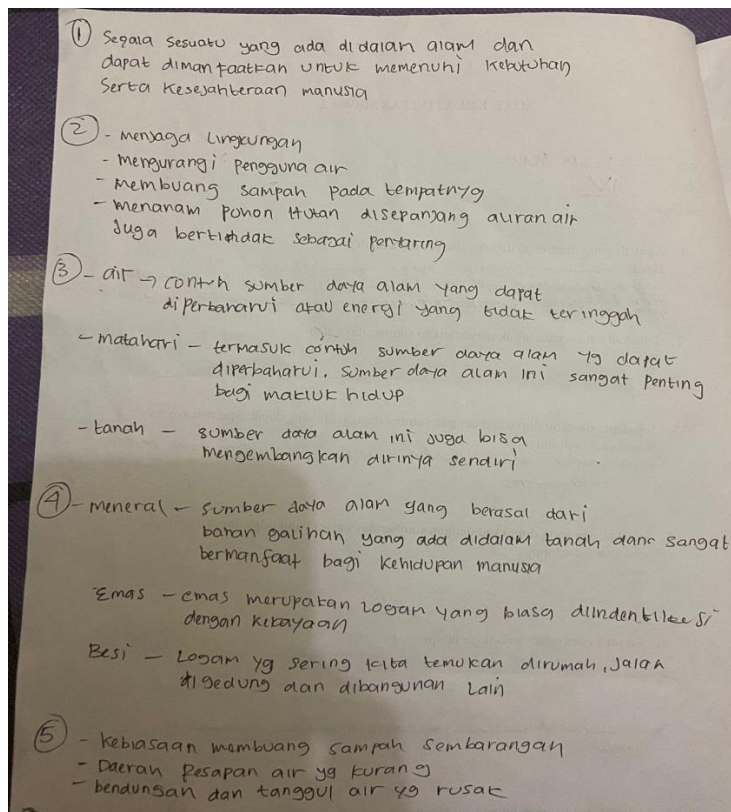 ① Segala Sesuatu yang ada didalan alam dan
dapat dimanfaatkan untuk memenuhi kebutuhan
Serta Kesejahteraan manusia
② - menjaga Lingkungan
- mengurangi pengguna air
- Membuang sampah pada tempatnya
- menanam pohon Hutan disepanjang aliran air
Juga bertindak sebagai pentaring
③ - air → contoh sumber daya alam yang dapat
diperbaharui atau energi yang tidak teringgah
- matahari - termasuk contoh sumber daya alam yg dapat
diperbaharui. Sumber daya alam ini sangat penting
bagi makluk hidup
- tanah - sumber daya alam ini juga bisa
mengembangkan dirinya sendiri
④ - meneral - sumber daya alam yang berasal dari
bahan galihan yang ada didalam tanah dan sangat
bermanfaat bagi kehidupan manusia
Emas - emas merupakan Logan yang biasa
dengan kekayaan
Besi - Logam yg sering kita temukan dirumah, jalan
digedung dan dibangunan Lain
⑤ - kebiasaan membuang sampah sembarangan
- Daerah Resapan air yg kurang
- bendungan dan tanggul air yg rusak